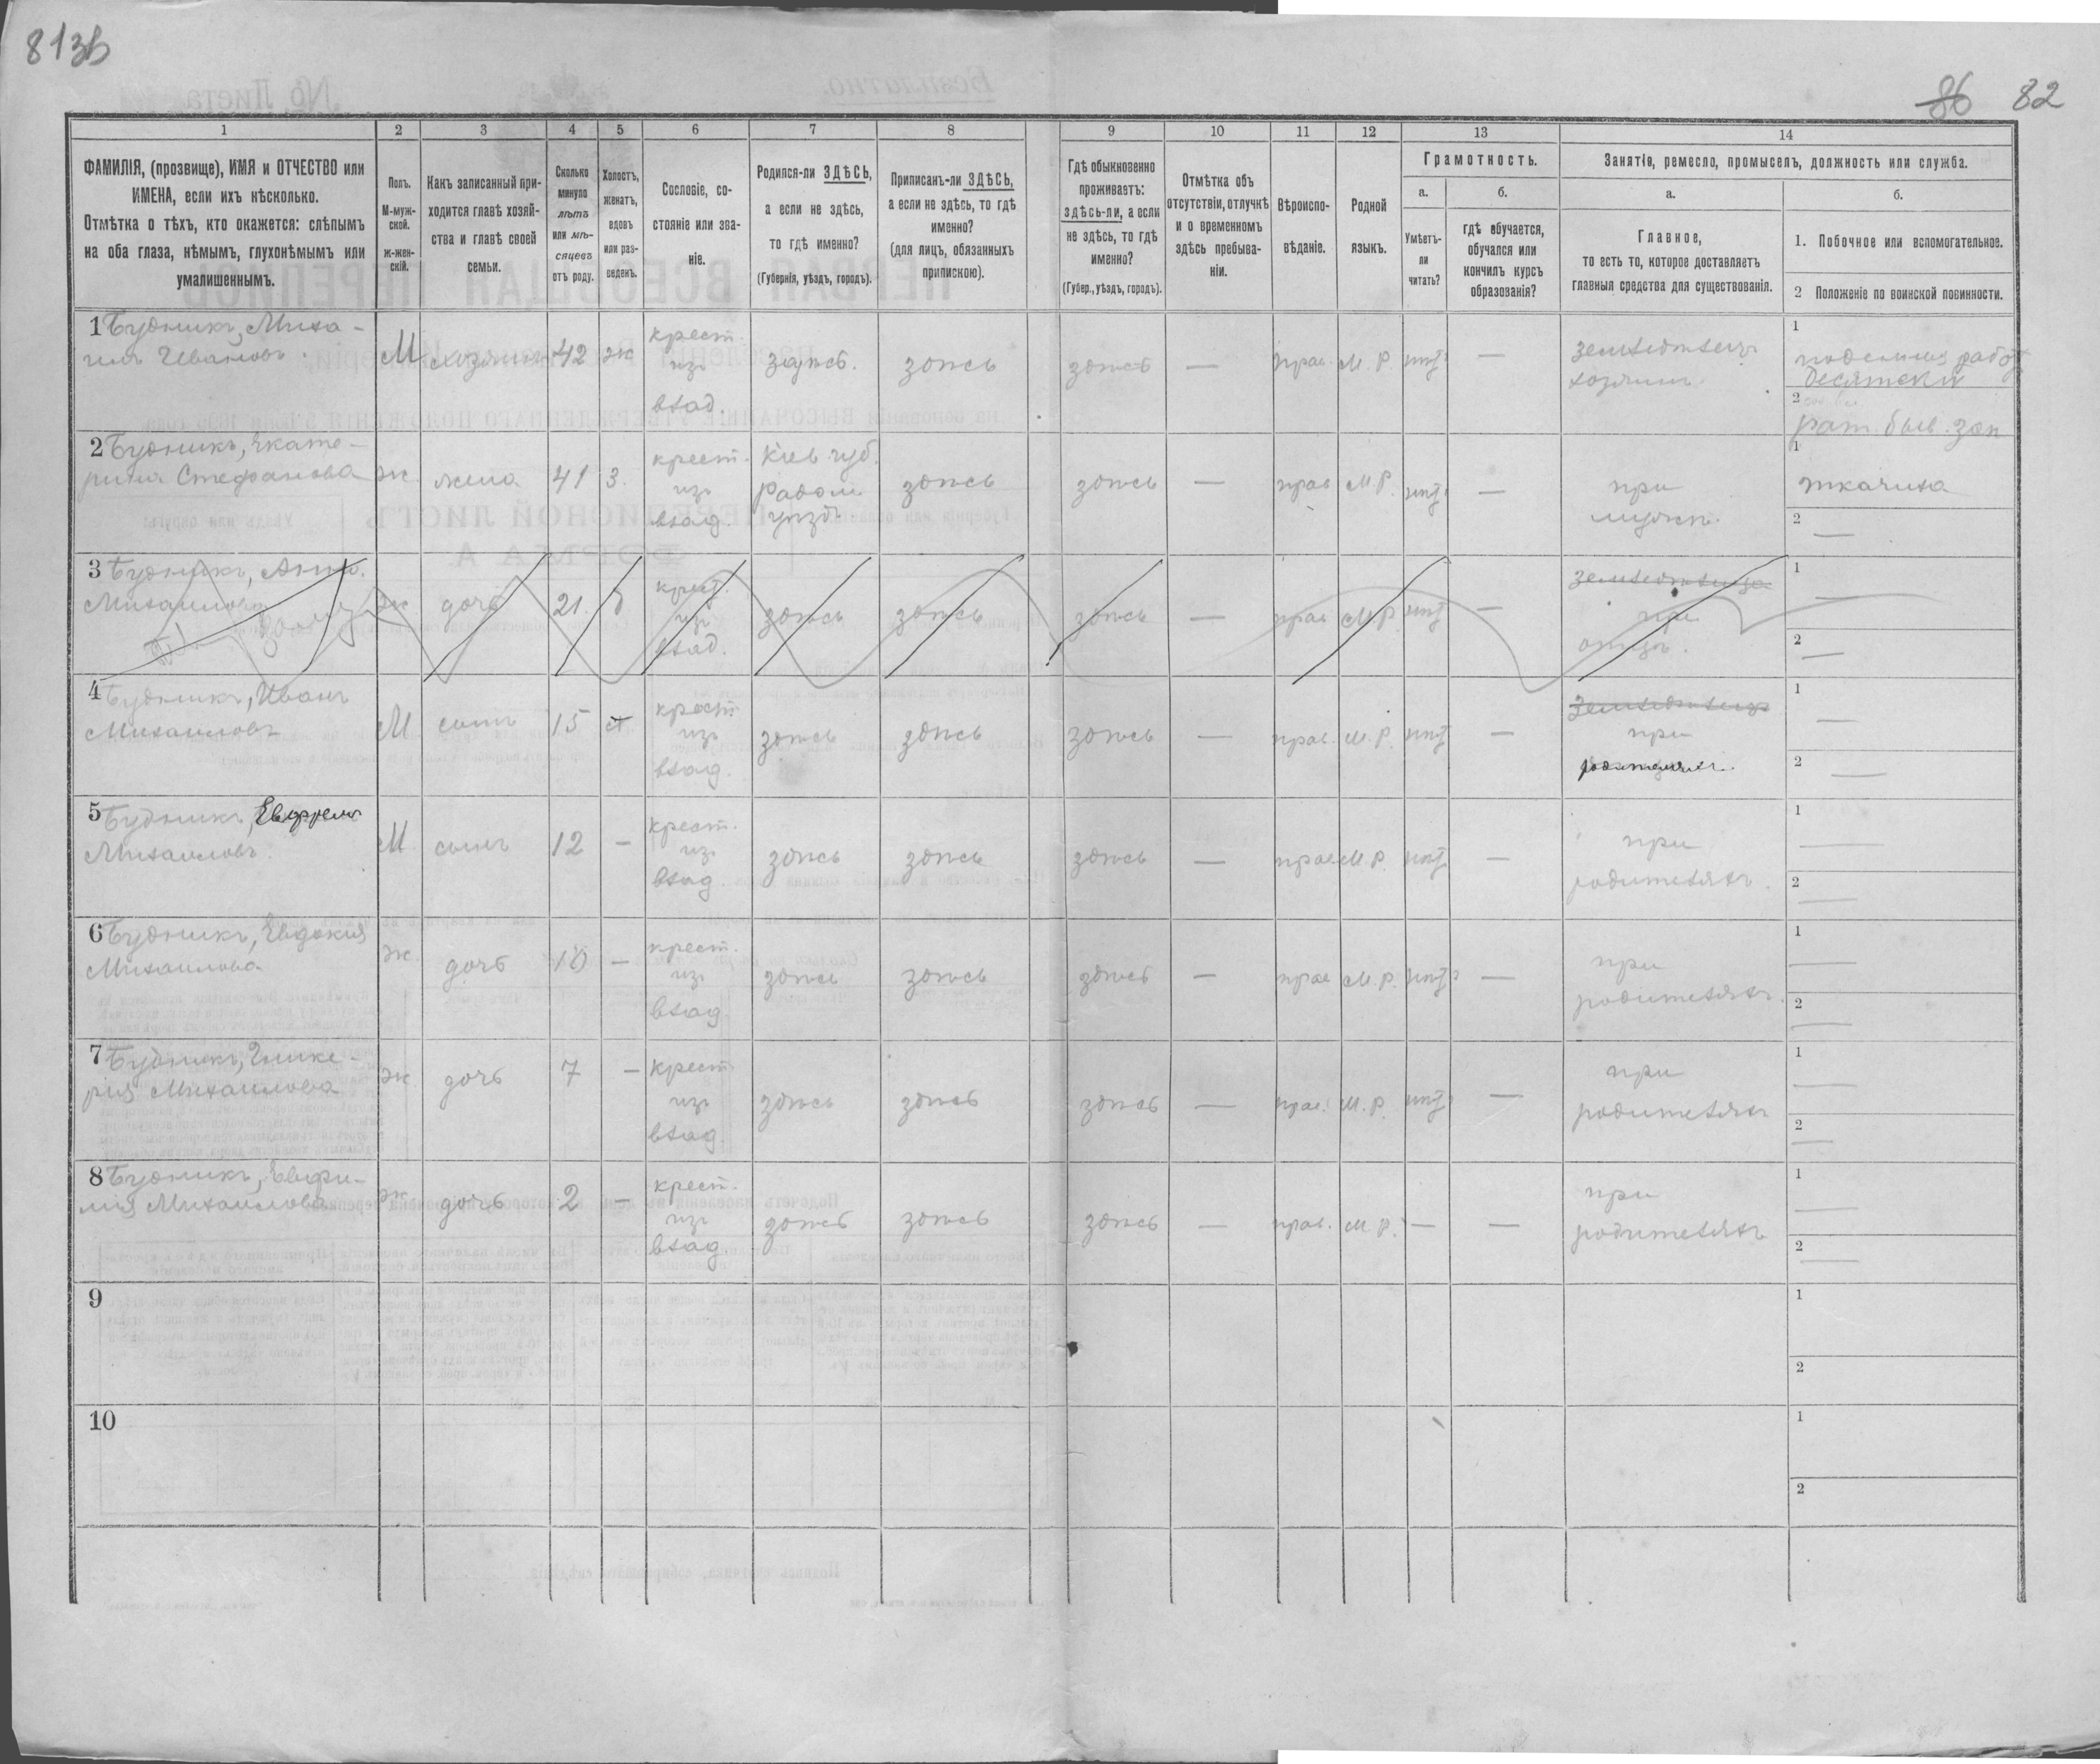 813б
86 82
1 2 3 4 5 6 7 8 9 10 11 12 13 14
ФАМИЛІЯ, (прозвище), ИМЯ и ОТЧЕСТВО или
ИМЕНА, если ихъ нѣсколько.
Отмѣтка о тѣхъ, кто окажется: слѣпымъ
на оба глаза, нѣмымъ, глухонѣмымъ или
умалишеннымъ.
Полъ.
М-муж-
ской.
ж-жен-
скій.
Какъ записанный при-
ходится главѣ хозяй-
ства и главѣ своей
семьи.
Сколько
минуло
лѣтъ
или мѣ-
сяцевъ
отъ роду.
Холостъ,
женатъ,
вдовъ
или раз-
веденъ.
Сословіе, со-
стояніе или зва-
ніе.
Родился-ли ЗДѢСЬ,
а если не здѣсь,
то гдѣ именно?
(Губернія, уѣздъ, городъ).
Приписанъ-ли ЗДѢСЬ,
а если не здѣсь, то гдѣ
именно?
(для лицъ, обязанныхъ
припискою).
Гдѣ обыкновенно
проживаетъ:
здѣсь-ли, а если
не здѣсь, то гдѣ
именно?
(Губер., уѣздъ, городъ).
Отмѣтка объ
отсутствіи, отлучкѣ
и о временномъ
здѣсь пребыва-
ніи.
Вѣроиспо-
вѣданіе.
Родной
языкъ.
Грамотность.
а.
Умѣетъ-
ли
читать?
б.
гдѣ обучается,
обучался или
кончилъ курсъ
образованія?
Занятіе, ремесло, промыселъ, должность или служба.
а.
Главное,
то есть то, которое доставляетъ
главныя средства для существованія.
б.
1. Побочное или вспомогательное.
2 Положеніе по воинской повинности.
1 Будникъ, Миха-
илъ Ивановъ.
М хозяинъ 42 ж
крест.
изъ
влад.
здѣсь. здѣсь здѣсь — прав. М. Р. нѣтъ —
земледѣлецъ
хозяинъ
1
поденныя работ
десятскій
2
рат. быв. зап
2 Будникъ, Екате-
рина Стефанова
ж. жена 41 З.
крест.
изъ
влад.
Кіев. губ.
Радом
уѣздъ
здѣсь здѣсь — прав М. Р. нѣтъ —
при
мужѣ.
1
ткачиха
2 —
3 Будникъ, Анна
Михаилова
ж дочь 21. д
крест.
изъ
влад.
здѣсь здѣсь здѣсь — прав М. Р. нѣтъ —
земледѣлица
при
отцѣ.
1 —
2 —
4 Будникъ, Иванъ
Михаиловъ
М сынъ 15 х
крест.
изъ
влад.
здѣсь здѣсь здѣсь — прав. М. Р. нѣтъ —
Земледѣлецъ
при
родителяхъ.
1 —
2 —
5 Будникъ, Евфремъ
Михаиловъ.
М сынъ 12 —
крест.
изъ
влад
здѣсь здѣсь здѣсь — прав М. Р. нѣтъ —
при
родителяхъ.
1 —
2 —
6 Будникъ, Евдокия
Михаилова
ж. дочь 10 —
крест.
изъ
влад.
здѣсь здѣсь здѣсь — прав М. Р. нѣтъ —
при
родителяхъ.
1 —
2 —
7 Будникъ, Глике-
рия Михаилова
ж дочь 7 —
крест.
изъ
влад.
здѣсь здѣсь здѣсь — прав. М. Р. нѣтъ —
при
родителяхъ
1 —
2 —
8 Будникъ, Евфи-
мия Михаилова
ж. дочь 2 —
крест.
изъ
влад
здѣсь здѣсь здѣсь — прав. М. Р. — —
при
родителяхъ
1 —
2 —
9
1
2
10
1
2